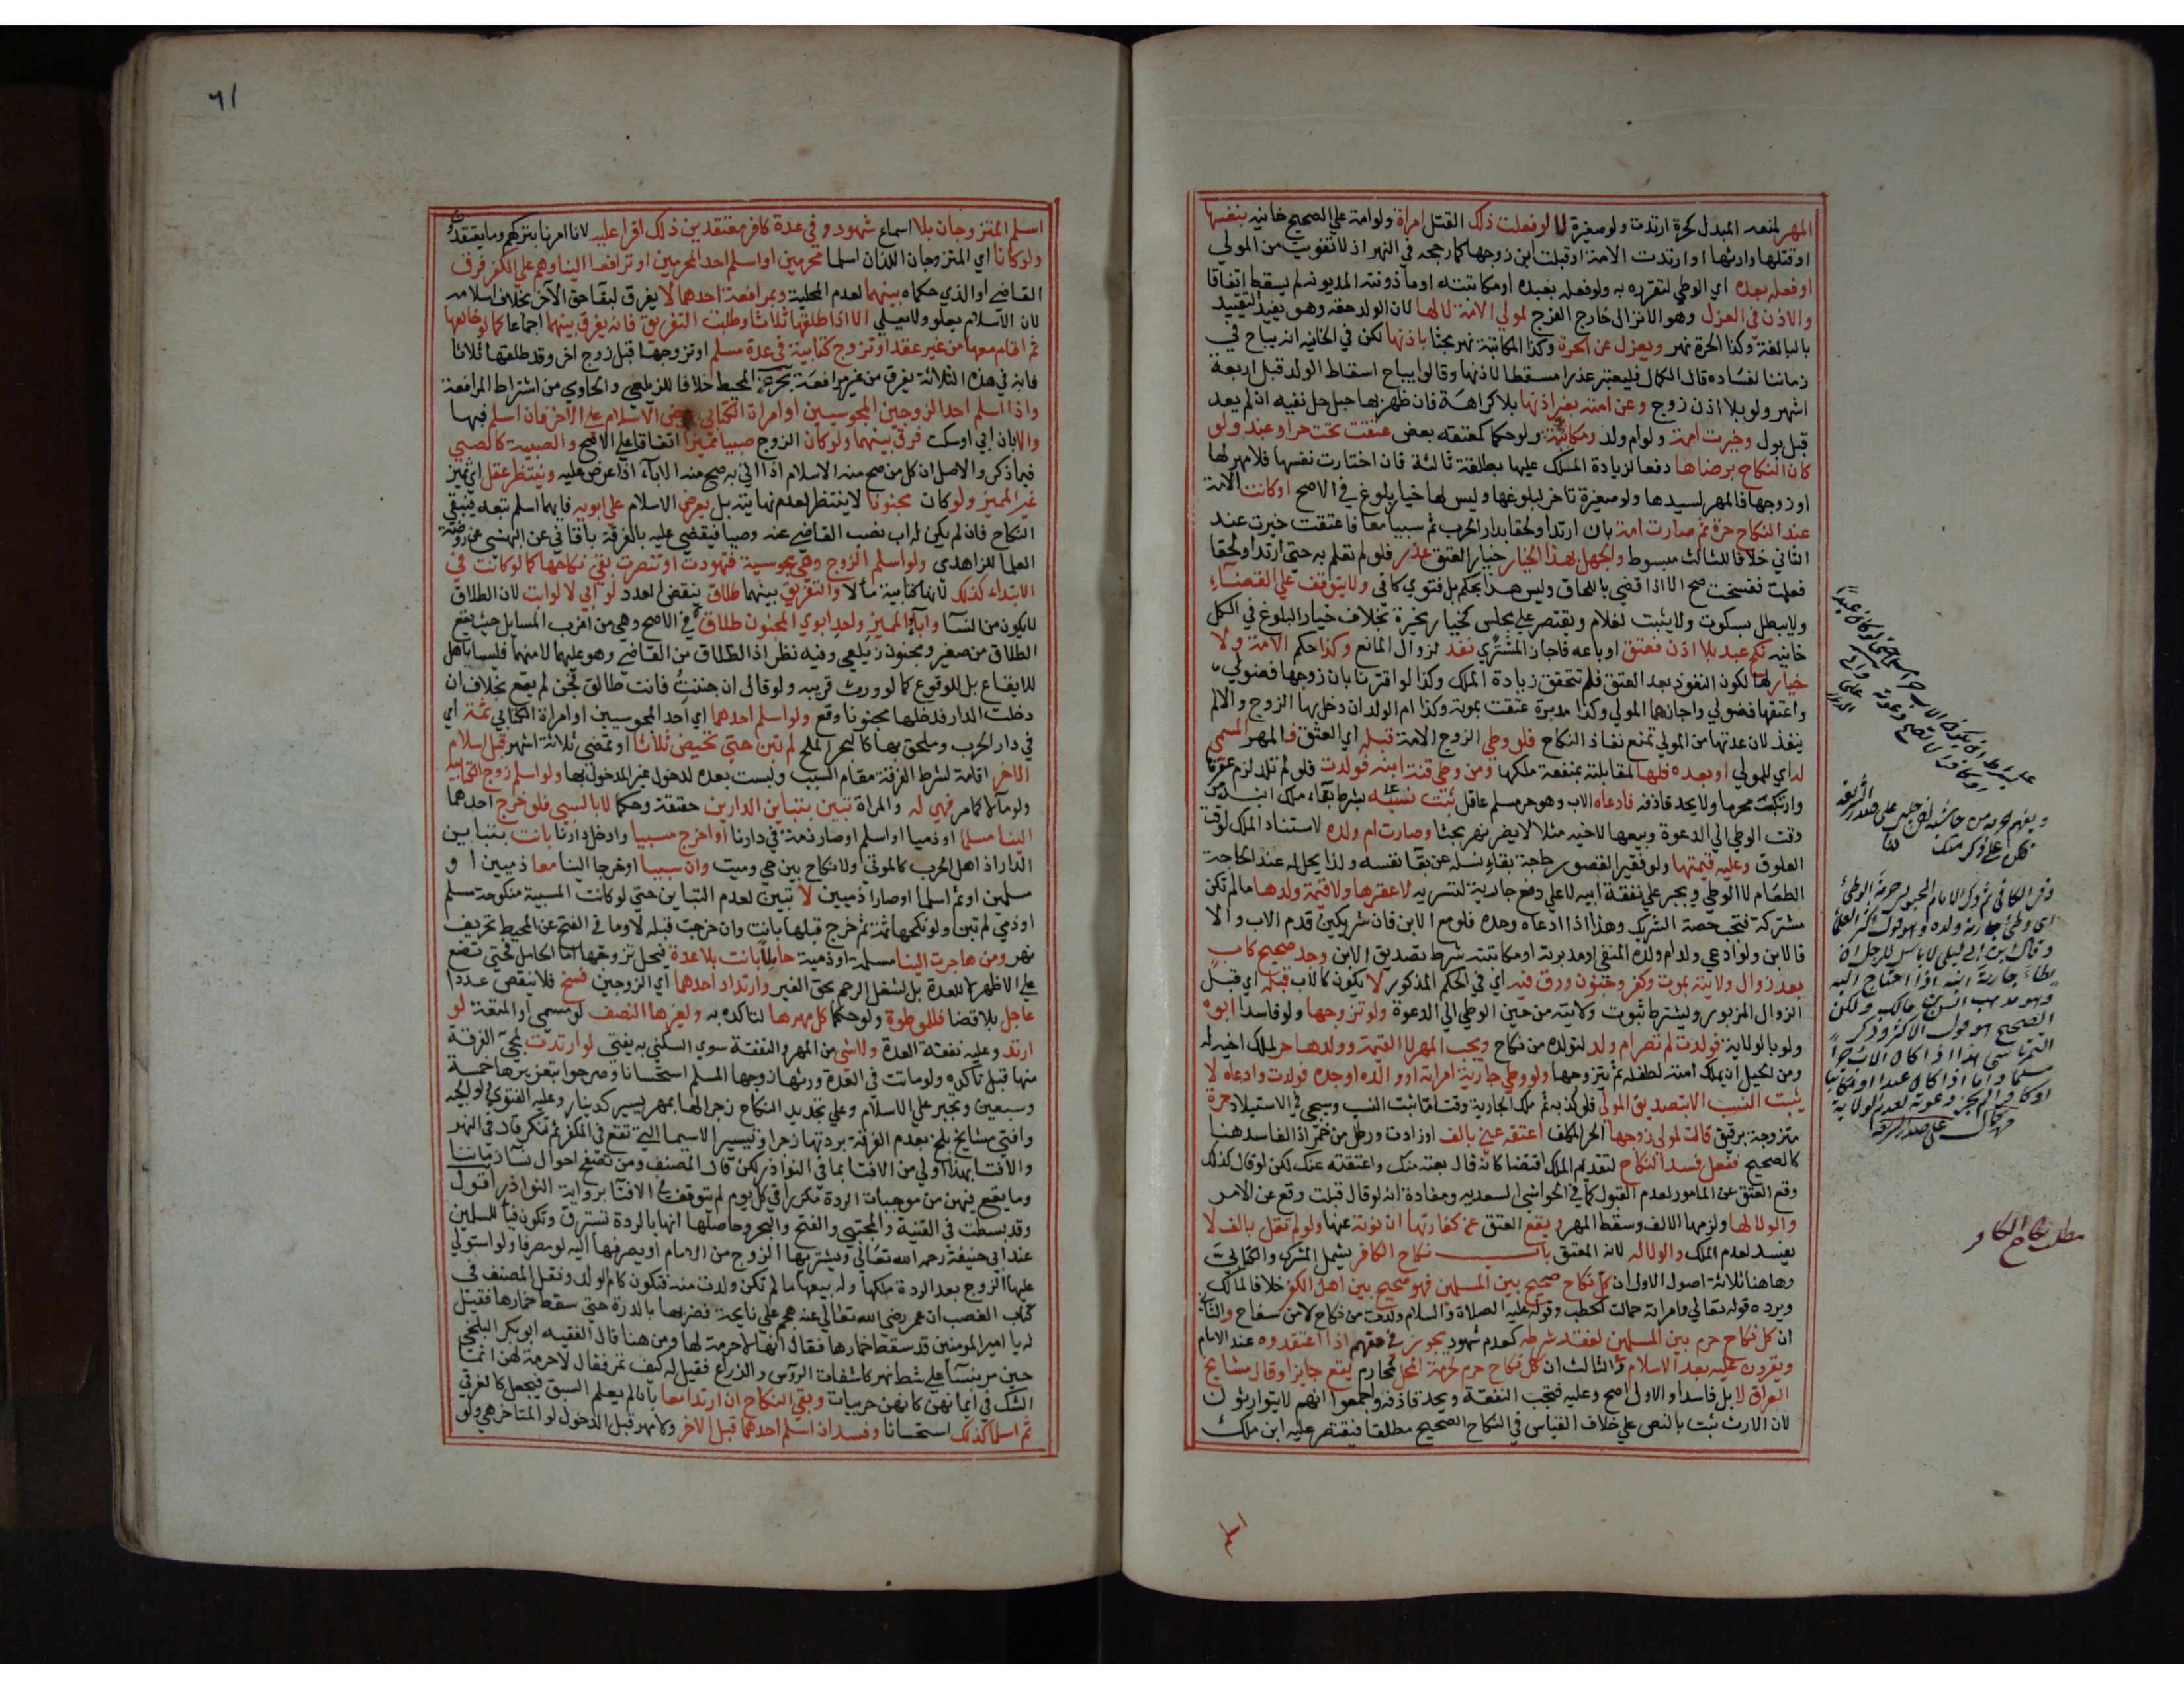 المهر لمنعه المبدل كحرة ارتدت ولو صغيرة لا لو فعلت ذلك القتل امراة ولو امة علي الصحيح خانيه بنفسها
او قتلها وارثها او ارتدت الامة او قبلت ابن زوجها كما رجحه في النهر اذ لا تفويت من المولي
او فعله بعده اي الوطي لتقرره به ولو فعله بعبده او مكاتبته او ماذونته المديونه لم يسقط اتفاقا
والاذن في العزل وهو الانزال خارج الفرج لمولي الامة لا لها لان الولد حقه وهو يفيد التقييد
بالبالغة وكذا الحرة نهر ويعزل عن الحرة وكذا المكاتبة نهر بحثا باذنها لكن في الخانيه انه يباح في
زماننا لفساده قال الكمال فليعتبر عذرا مسقطا لاذنها وقالوا يباح اسقاط الولد قبل اربعة
اشهر ولو بلا اذن زوج وعن امته بغير اذنها بلا كراهة فان ظهر بها حبل حل نفيه ان لم يعد
قبل بول وخيرت امة ولو ام ولد ومكاتبة ولو حكما كمعتقه بعض عتقت تحت حر او عبد ولو
كان النكاح برضاها دفعا لزيادة الملك عليها بطلقة ثالثة فان اختارت نفسها فلا مهر لها
او زوجها فالمهر لسيدها ولو صغيرة تاخر لبلوغها وليس لها خيار بلوغ في الاصح او كانت الامة
عند النكاح حرة ثم صارت امة بان ارتدا ولحقا بدار الحرب ثم سبيا معا فاعتقت خيرت عند
الثاني خلافا للثالث مبسوط والجهل بهذا الخيار خيار العتق عذر فلو لم تعلم به حتى ارتدا ولحقا
فعلمت ففسخت صح الا اذا قضي باللحاق وليس هذا بحكم بل فتوي كافي ولا يتوقف علي القضاء
ولا يبطل بسكوت ولا يثبت لغلام ويقتصر علي مجلس كخيار مخيرة بخلاف خيار البلوغ في الكل
خانيه نكح عبد بلا اذن فعتق او باعه فاجاز المشتري نفذ لزوال المانع وكذا حكم الامة ولا
خيار لها لكون النفوذ بعد العتق فلم تتحقق زيادة الملك وكذا لو اقترنا بان زوجها فضولي
واعتقها فضولي واجازهما المولي وكذا مدبرة عتقت بموته وكذا ام الولد ان دخل بها الزوج والا لم
ينفذ لان عدتها من المولي تمنع نفاذ النكاح فلو وطي الزوج الامة قبله اي العتق فالمهر المسمي
له اي للمولي او بعده فلها لمقابلته بمنفعة ملكها ومن وطي قنة ابنه فولدت فلو لم تلد لزم عقرها
وارتكب محرما ولا يحد قاذفه فادعاه الاب وهو حر مسلم عاقل ثبت نسبه بشرط بقاء ملك ابنه من
وقت الوطي الي الدعوة وبيعها لاخيه مثلا لا يضر نهر بحثا وصارت ام ولده لاستناد الملك لوقت
العلوق وعليه قيمتها ولو فقيرا لقصور حاجة بقاء نسله عن بقا نفسه ولذا يحل له عند الحاجة
الطعام لا الوطي ويجبر علي نفقة ابيه لا علي دفع جارية لتسريه لا عقرها ولا قيمة ولدها ما لم تكن
مشتركة فتجب حصة الشريك وهذا اذا ادعاه وحده فلو مع الابن فان شريكين قدم الاب والا
فالابن ولو ادعي ولد ام ولده المنفي او مدبرته او مكاتبته شرط تصديق الابن وجد صحيح كاب
بعد زوال ولايته بموت وكفر وجنون ورق فيه اي في الحكم المذكور لا يكون كالاب قبله اي قبل
الزوال المزبور ويشترط ثبوت ولايته من حين الوطي الي الدعوة ولو تزوجها ولو فاسدا ابوه
ولو بالولاية فولدت لم تصر ام ولد لتولده من نكاح ويجب المهر لا القيمة وولدها حر لملك اخيه له
ومن الحيل ان يملك امته لطفله ثم يتزوجها ولو وطي جارية امراته او والده او جده فولدت وادعاه لا
يثبت النسب الا بتصديق المولي فلو كذبه ثم ملك الجارية وقتا ما ثبت النسب وسيجي في الاستيلاد حرة
متزوجة برقيق قالت لمولي زوجها الحر المكلف اعتقه عني بالف او زادت ورطل من خمر اذ الفاسد هنا
كالصحيح ففعل فسد النكاح لتقدم الملك اقتضا كانه قال بعته منك واعتقته عنك لكن لو قال كذلك
وقع العتق عن المامور لعدم القبول كما في الحواشي السعديه ومفاده انه لو قال قبلت وقع عن الامر
والولا لها ولزمها الالف وسقط المهر ويقع العتق عن كفارتها ان نوته عنها ولو لم تقل بالف لا
يفسد لعدم الملك والولا له لانه المعتق باب نكاح الكافر يشمل المشرك والكتابي
وهاهنا ثلاثة اصول الاول ان كل نكاح صحيح بين المسلمين فهو صحيح بين اهل الكفر خلافا لمالك
ويرده قوله تعالي وامراته حمالة الحطب وقوله عليه الصلاة والسلام ولدت من نكاح لا من سفاح والثاني
ان كل نكاح حرم بين المسلمين لفقد شرطه كعدم شهود يجوز في حقهم اذا اعتقدوه عند الامام
ويقرون عليه بعد الاسلام والثالث ان كل نكاح حرم لحرمة المحل كمحارم يقع جايزا وقال مشايخ
العراق لا بل فاسدا والاول اصح وعليه فتجب النفقة ويحد قاذفه واجمعوا انهم لا يتوارثون
لان الارث ثبت بالنص علي خلاف القياس في النكاح الصحيح مطلقا فيقتصر عليه ابن ملك
مطلب نكاح الكافر
٦١
اسلم المتزوجان بلا اسماع شهود وفي عدة كافر معتقدين ذلك اقرا عليه لانا امرنا بتركهم وما يعتقدون
ولو كانا اي المتزوجان اللذان اسلما محرمين او اسلم احد المحرمين او ترافعا الينا وهم علي الكفر فرق
القاضي او الذي حكماه بينهما لعدم المحلية وبمرافعة احدهما لا يفرق لبقا حق الآخر بخلاف اسلامه
لان الاسلام يعلو ولا يعلي الا اذا طلقها ثلاثا وطلبت التفريق فانه يفرق بينهما اجماعا كما لو خالعها
ثم اقام معها من غير عقد او تزوج كتابية في عدة مسلم او تزوجها قبل زوج اخر وقد طلقها ثلاثا
فانه في هذه الثلاثة يفرق من غير مرافعة بحر عن المحيط خلافا للزيلعي والحاوي من اشتراط المرافعة
واذا اسلم احد الزوجين المجوسيين او امراة الكتابي عرض الاسلام علي الاخر فان اسلم فبها
والا بان ابي او سكت فرق بينهما ولو كان الزوج صبيا مميزا اتفاقا علي الاصح والصبية كالصبي
فيما ذكر والاصل ان كل من صح منه الاسلام اذا اتي به صح منه الاباء اذا عرض عليه وينتظر عقل اي تمييز
غير المميز ولو كان مجنونا لا ينتظر لعدم نهايته بل يعرض الاسلام علي ابويه فايهما اسلم تبعه فيبقي
النكاح فان لم يكن له اب نصب القاضي عنه وصيا فيقضي عليه بالفرقة باقاني عن البهنسي عن روضة
العلما للزاهدي ولو اسلم الزوج وهي مجوسية فتهودت او تنصرت بقي نكاحها كما لو كانت في
الابتداء كذلك لانها كتابية مآلا والتفريق بينهما طلاق ينقص العدد لو ابي لا لو ابت لان الطلاق
لا يكون من النسا واباء المميز واحد ابوي المجنون طلاق في الاصح وهي من اغرب المسايل حيث يقع
الطلاق من صغير ومجنون زيلعي وفيه نظر اذ الطلاق من القاضي وهو عليهما لا منهما فليسا باهل
للايقاع بل للوقوع كما لو ورث قريبه ولو قال ان جننت فانت طالق فجن لم يقع بخلاف ان
دخلت الدار فدخلها مجنونا وقع ولو اسلم احدهما اي احد المجوسيين او امراة الكتابي ثمة اي
في دار الحرب وملحق بها كالبحر الملح لم تبن حتى تحيض ثلاثا او تمضي ثلاثة اشهر قبل اسلام
الاخر اقامة لشرط الفرقة مقام السبب وليست بعدة لدخول غير المدخول بها ولو اسلم زوج الكتابية
ولو مآلا كما مر فهي له والمراة تبين بتباين الدارين حقيقة وحكما لا بالسبي فلو خرج احدهما
الينا مسلما او ذميا او اسلم او صار ذمة في دارنا او اخرج مسبيا وادخل دارنا بانت بتباين
الدار اذ اهل الحرب كالموتي ولا نكاح بين حي وميت وان سبيا او خرجا الينا معا ذميين او
مسلمين او ثم اسلما او صارا ذميين لا تبين لعدم التباين حتي لو كانت المسبية منكوحة مسلم
او ذمي لم تبن ولو نكحها ثمة ثم خرج قبلها بانت وان خرجت قبله لا وما في الفتح عن المحيط تحريف
نهر ومن هاجرت الينا مسلمة او ذمية حايلا بانت بلا عدة فيحل تزوجها اما الحامل فحتي تضع
علي الاظهر لا للعدة بل لشغل الرحم بحق الغير وارتداد احدهما اي الزوجين فسخ فلا ينقص عددا
عاجل بلا قضا فللموطوة ولو حكما كل مهرها لتاكده به ولغيرها النصف لو مسمي او المتعة لو
ارتد وعليه نفقة العدة ولا شي من المهر والنفقة سوي السكني به يفتي لو ارتدت لمجي الفرقة
منها قبل تاكده ولو ماتت في العدة ورثها زوجها المسلم استحسانا وصرحوا بتعزيرها خمسة
وسبعين وتجبر علي الاسلام وعلي تجديد النكاح زجرا لها بمهر يسير كدينار وعليه الفتوي ولوالجيه
وافتي مشايخ بلخ بعدم الفرقة بردتها زجرا وتيسيرا لا سيما التي تقع في المكفر ثم تنكر قال في النهر
والافتا بهذا اولي من الافتا بما في النوادر لكن قال المصنف ومن تصفح احوال نسا زماننا
وما يقع منهن من موجبات الردة مكررا في كل يوم لم يتوقف في الافتا برواية النوادر اقول
وقد بسطت في القنية والمجتبي والفتح والبحر وحاصلها انها بالردة تسترق وتكون فيأ للمسلمين
عند ابي حنيفة رحمه الله تعالي ويشتريها الزوج من الامام او يصرفها اليه لو مصرفا ولو استولي
عليها الزوج بعد الردة ملكها وله بيعها ما لم تكن ولدت منه فتكون كام الولد ونقل المصنف في
كتاب الغصب ان عمر رضي الله تعالي عنه هجم علي نايحة فضربها بالدرة حتي سقط خمارها فقيل
له يا امير المومنين قد سقط خمارها فقال انها لا حرمة لها ومن هنا قال الفقيه ابو بكر البلخي
حين مر بنسا علي شط نهر كاشفات الروس والذراع فقيل له كيف تمر فقال لا حرمة لهن انما
الشك في ايمانهن كانهن حربيات وبقي النكاح ان ارتدا معا بان لم يعلم السبق فيجعل كالغرقي
ثم اسلما كذلك استحسانا وفسد ان اسلم احدهما قبل الاخر ولا مهر قبل الدخول لو المتاخر هي ولو